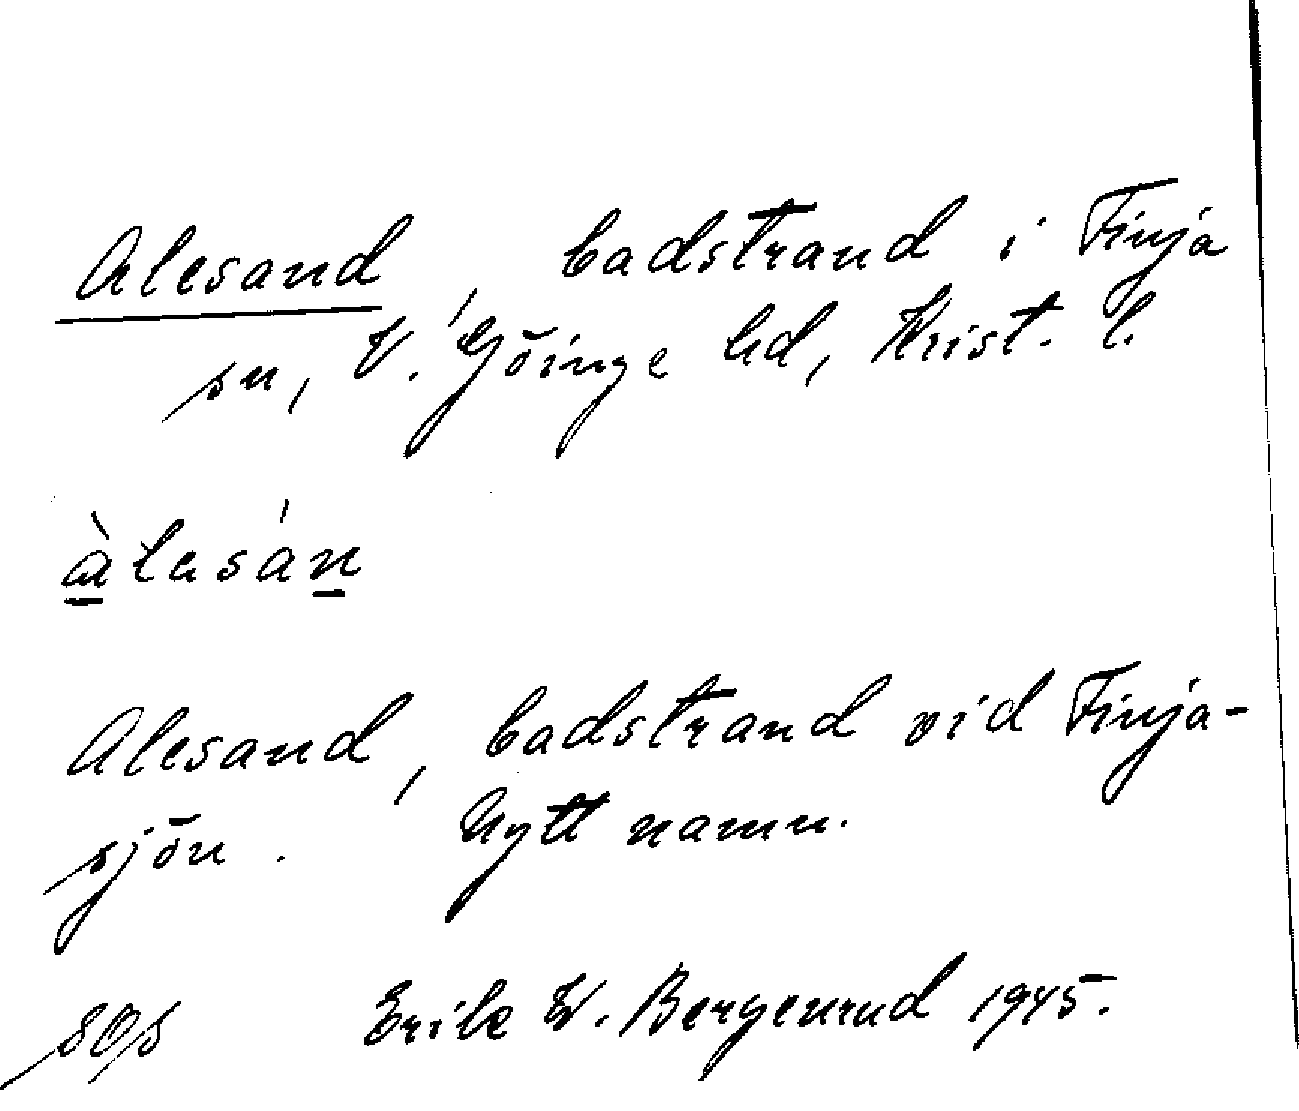 Alesand, badstrand i Finja
sn, V. Göinge hd, Krist. l.
àlasán
Alesand, badstrand vid Finja-
sjön. Nytt namn.
Erik W. Bergenrud 1945.